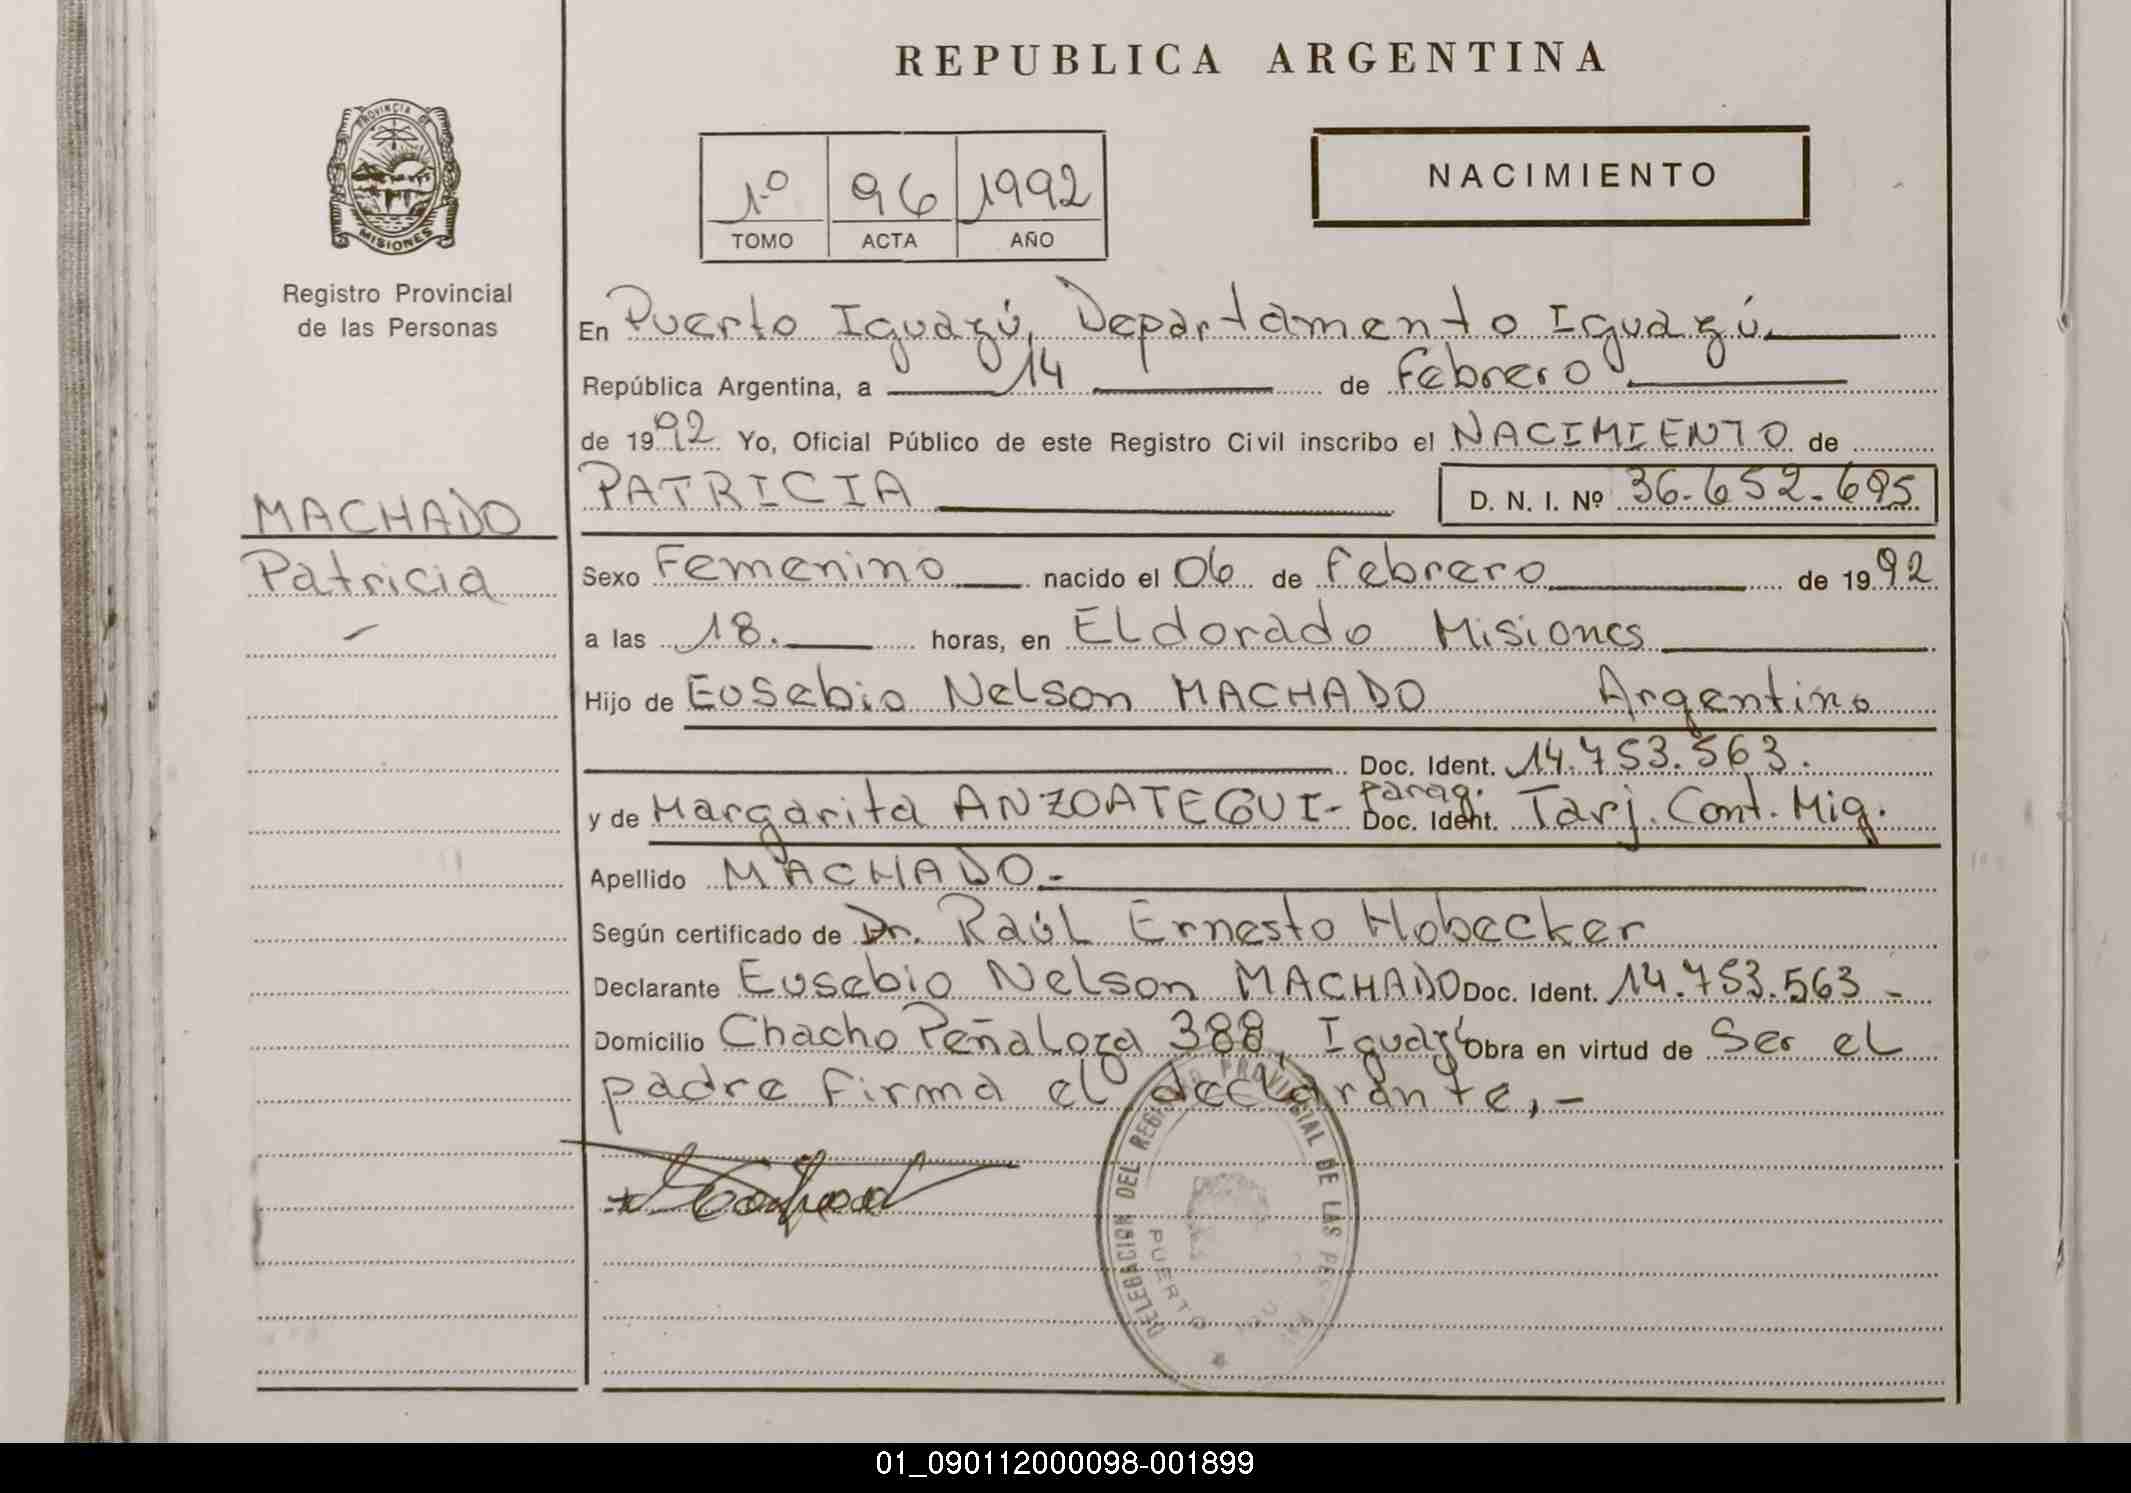 REPUBLICA ARGENTINA
PROVINCIA DE
MISIONES
Registro Provincial
de las Personas
1º 96 1992
TOMO ACTA AÑO
NACIMIENTO
MACHADO
Patricia
En Puerto Iguazú, Departamento Iguazú.
República Argentina, a 14 de Febrero
de 1992 Yo, Oficial Público de este Registro Civil inscribo el NACIMIENTO de
PATRICIA D. N. I. Nº 36.652.695
Sexo Femenino nacido el 06 de Febrero de 1992
a las 18. horas, en ELdorado Misiones
Hijo de Eusebio Nelson MACHADO Argentino
Doc. Ident. 14.753.563.
y de Margarita ANZOATEGUI- Parag. Doc. Ident. Tarj. Cont. Mig.
Apellido MACHADO.-
Según certificado de Dr. Raúl Ernesto Hobecker
Declarante Eusebio Nelson MACHADO Doc. Ident. 14.753.563-
Domicilio Chacho Peñaloza 388, Iguazú Obra en virtud de Ser el
padre firma el declarante,-
DELEGACION DEL REGISTRO PROVINCIAL DE LAS
PUERTO
01_090112000098-001899